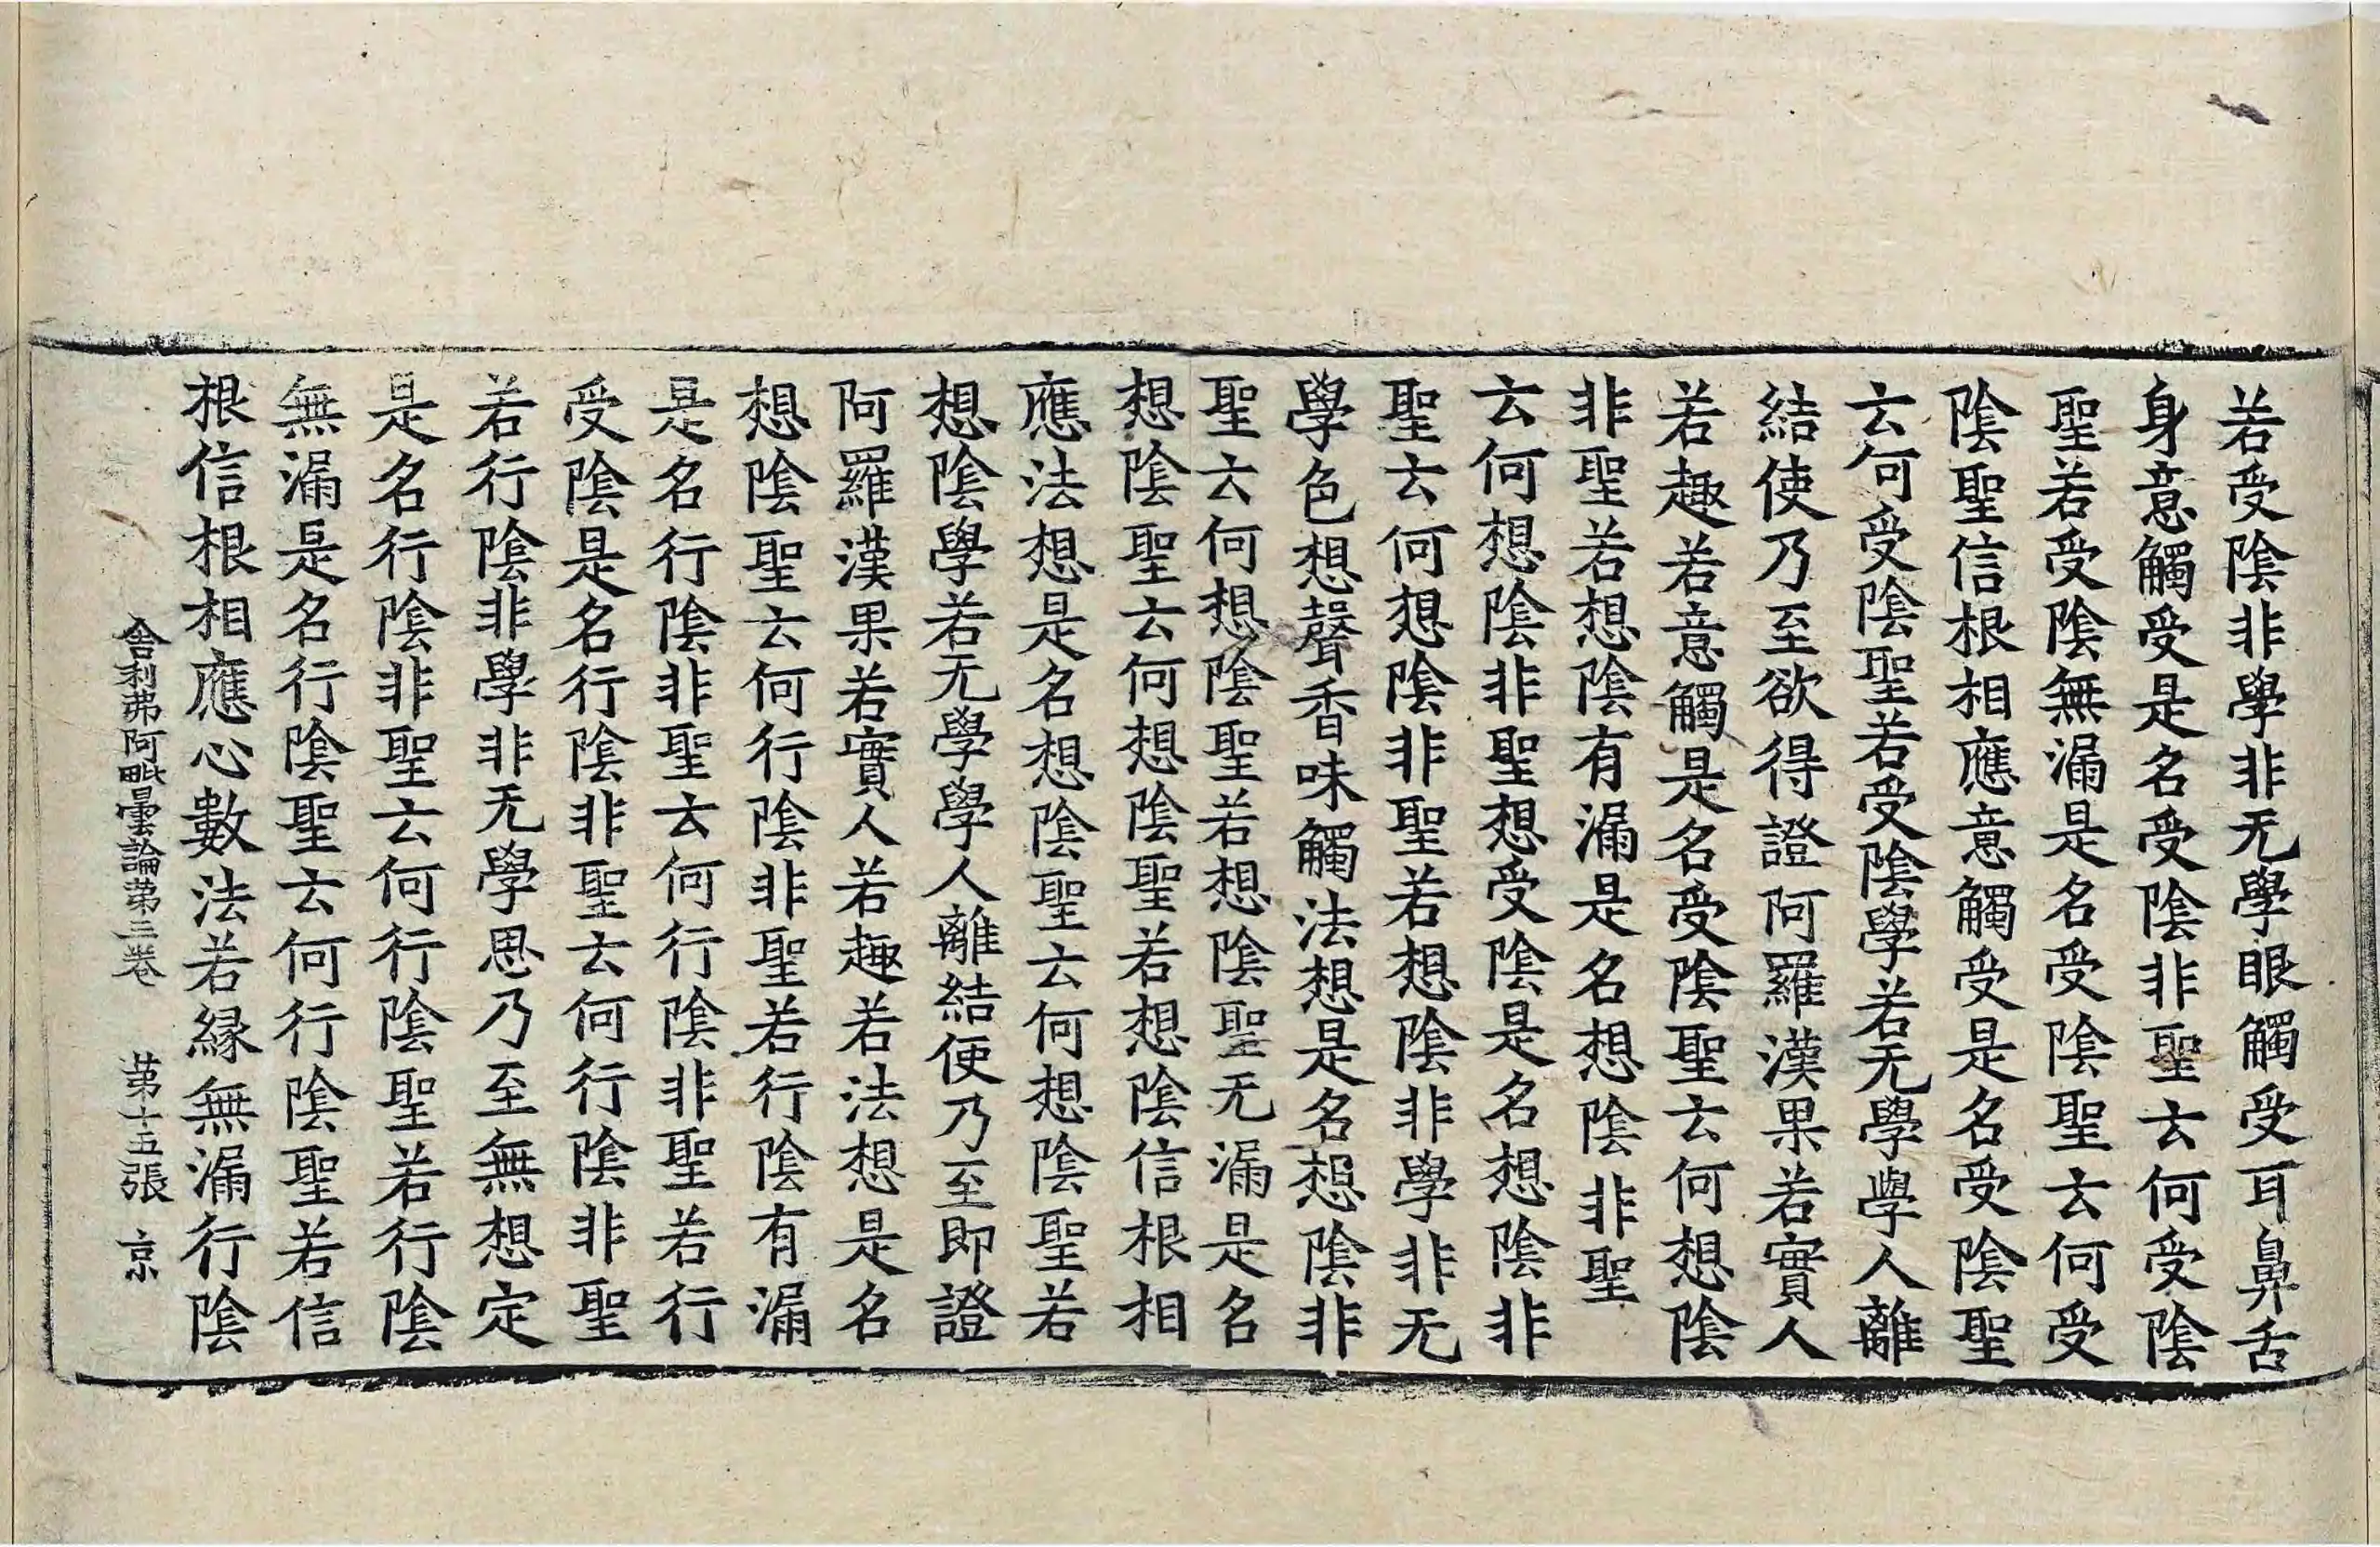 若受陰非學非无學眼觸受耳鼻舌
身意觸受是名受陰非聖云何受陰
聖若受陰無漏是名受陰聖云何受
陰聖信根相應意觸受是名受陰聖
云何受陰聖若受陰學若无學學人離
結使乃至欲得證阿羅漢果若實人
若趣若意觸是名受陰聖云何想陰
非聖若想陰有漏是名想陰非聖
云何想陰非聖想受陰是名想陰非
聖云何想陰非聖若想陰非學非无
學色想聲香味觸法想是名想陰非
聖云何想陰聖若想陰聖无漏是名
想陰聖云何想陰聖若想陰信根相
應法想是名想陰聖云何想陰聖若
想陰學若无學學人離結使乃至即證
阿羅漢果若實人若趣若法想是名
想陰聖云何行陰非聖若行陰有漏
是名行陰非聖云何行陰非聖若行
受陰是名行陰非聖云何行陰非聖
若行陰非學非无學思乃至無想定
是名行陰非聖云何行陰聖若行陰
無漏是名行陰聖云何行陰聖若信
根信根相應心數法若緣無漏行陰
舍利弗阿毗曇論第三卷 第十五張 京